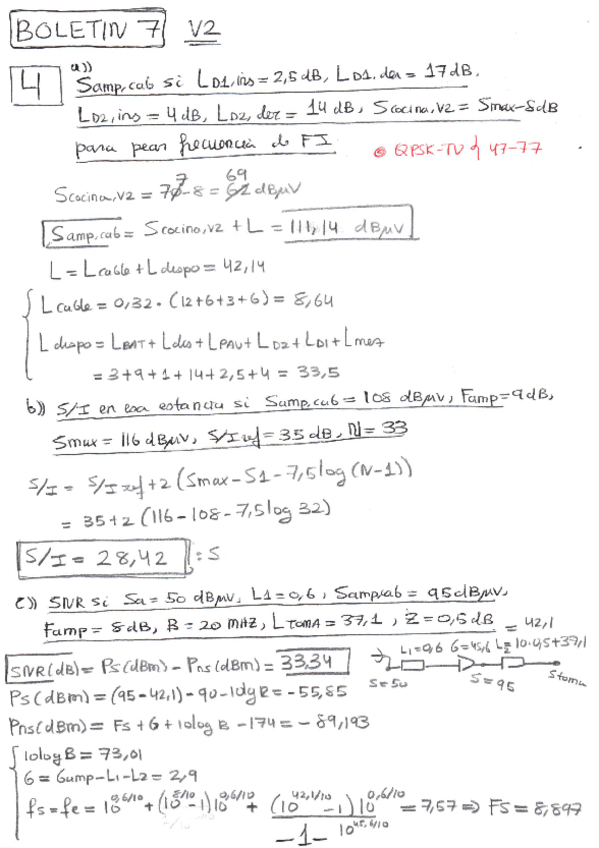 BOLETIN 7 V2
4 a)) Samp,cab si LD1,ins = 2,5 dB, LD1,der = 17 dB.
LD2,ins = 4 dB, LD2,der = 14 dB, Scocina,V2 = Smax-8dB
para peor frecuencia de FI.
QPSK-TV 47-77
Scocina,V2 = 77-8 = 69 dBμV
Samp,cab = Scocina,V2 + L = 111,14 dBμV
L = Lcable + Ldispo = 42,14
Lcable = 0,32 · (12+6+3+6) = 8,64
Ldispo = LBAT + Ldis + LPAU + LD2 + LD1 + Lmez
= 3+9+1+14+2,5+4 = 33,5
b)) S/I en esa estancia si Samp,cab = 108 dBμV, Famp = 9 dB,
Smax = 116 dBμV, S/I ref = 35 dB, N = 33
S/I = S/I ref + 2 (Smax - S1 - 7,5 log (N-1))
= 35 + 2 (116 - 108 - 7,5 log 32)
S/I = 28,42 : S
c)) SNR si Sa = 50 dBμV, L1 = 0,6, Samp,cab = 95 dBμV,
Famp = 8 dB, B = 20 MHz, LTOMA = 37,1, Z = 0,5 dB
= 42,1
L1=0,6 G=45,6 L2=10·0,5+37,1
S=50 S=95 Stoma
SNR(dB) = Ps(dBm) - Pns(dBm) = 33,34
Ps(dBm) = (95 - 42,1) - 90 - 10lg R = -55,85
Pns(dBm) = Fs + G + 10log B - 174 = -89,193
10log B = 73,01
G = Gamp - L1 - L2 = 2,9
fs = fe = 10^0,6/10 + (10^8/10 - 1) 10^0,6/10 + (10^42,1/10 - 1) 10^0,6/10 / 10^45,6/10 = 7,57 ⇒ FS = 8,897
-1-